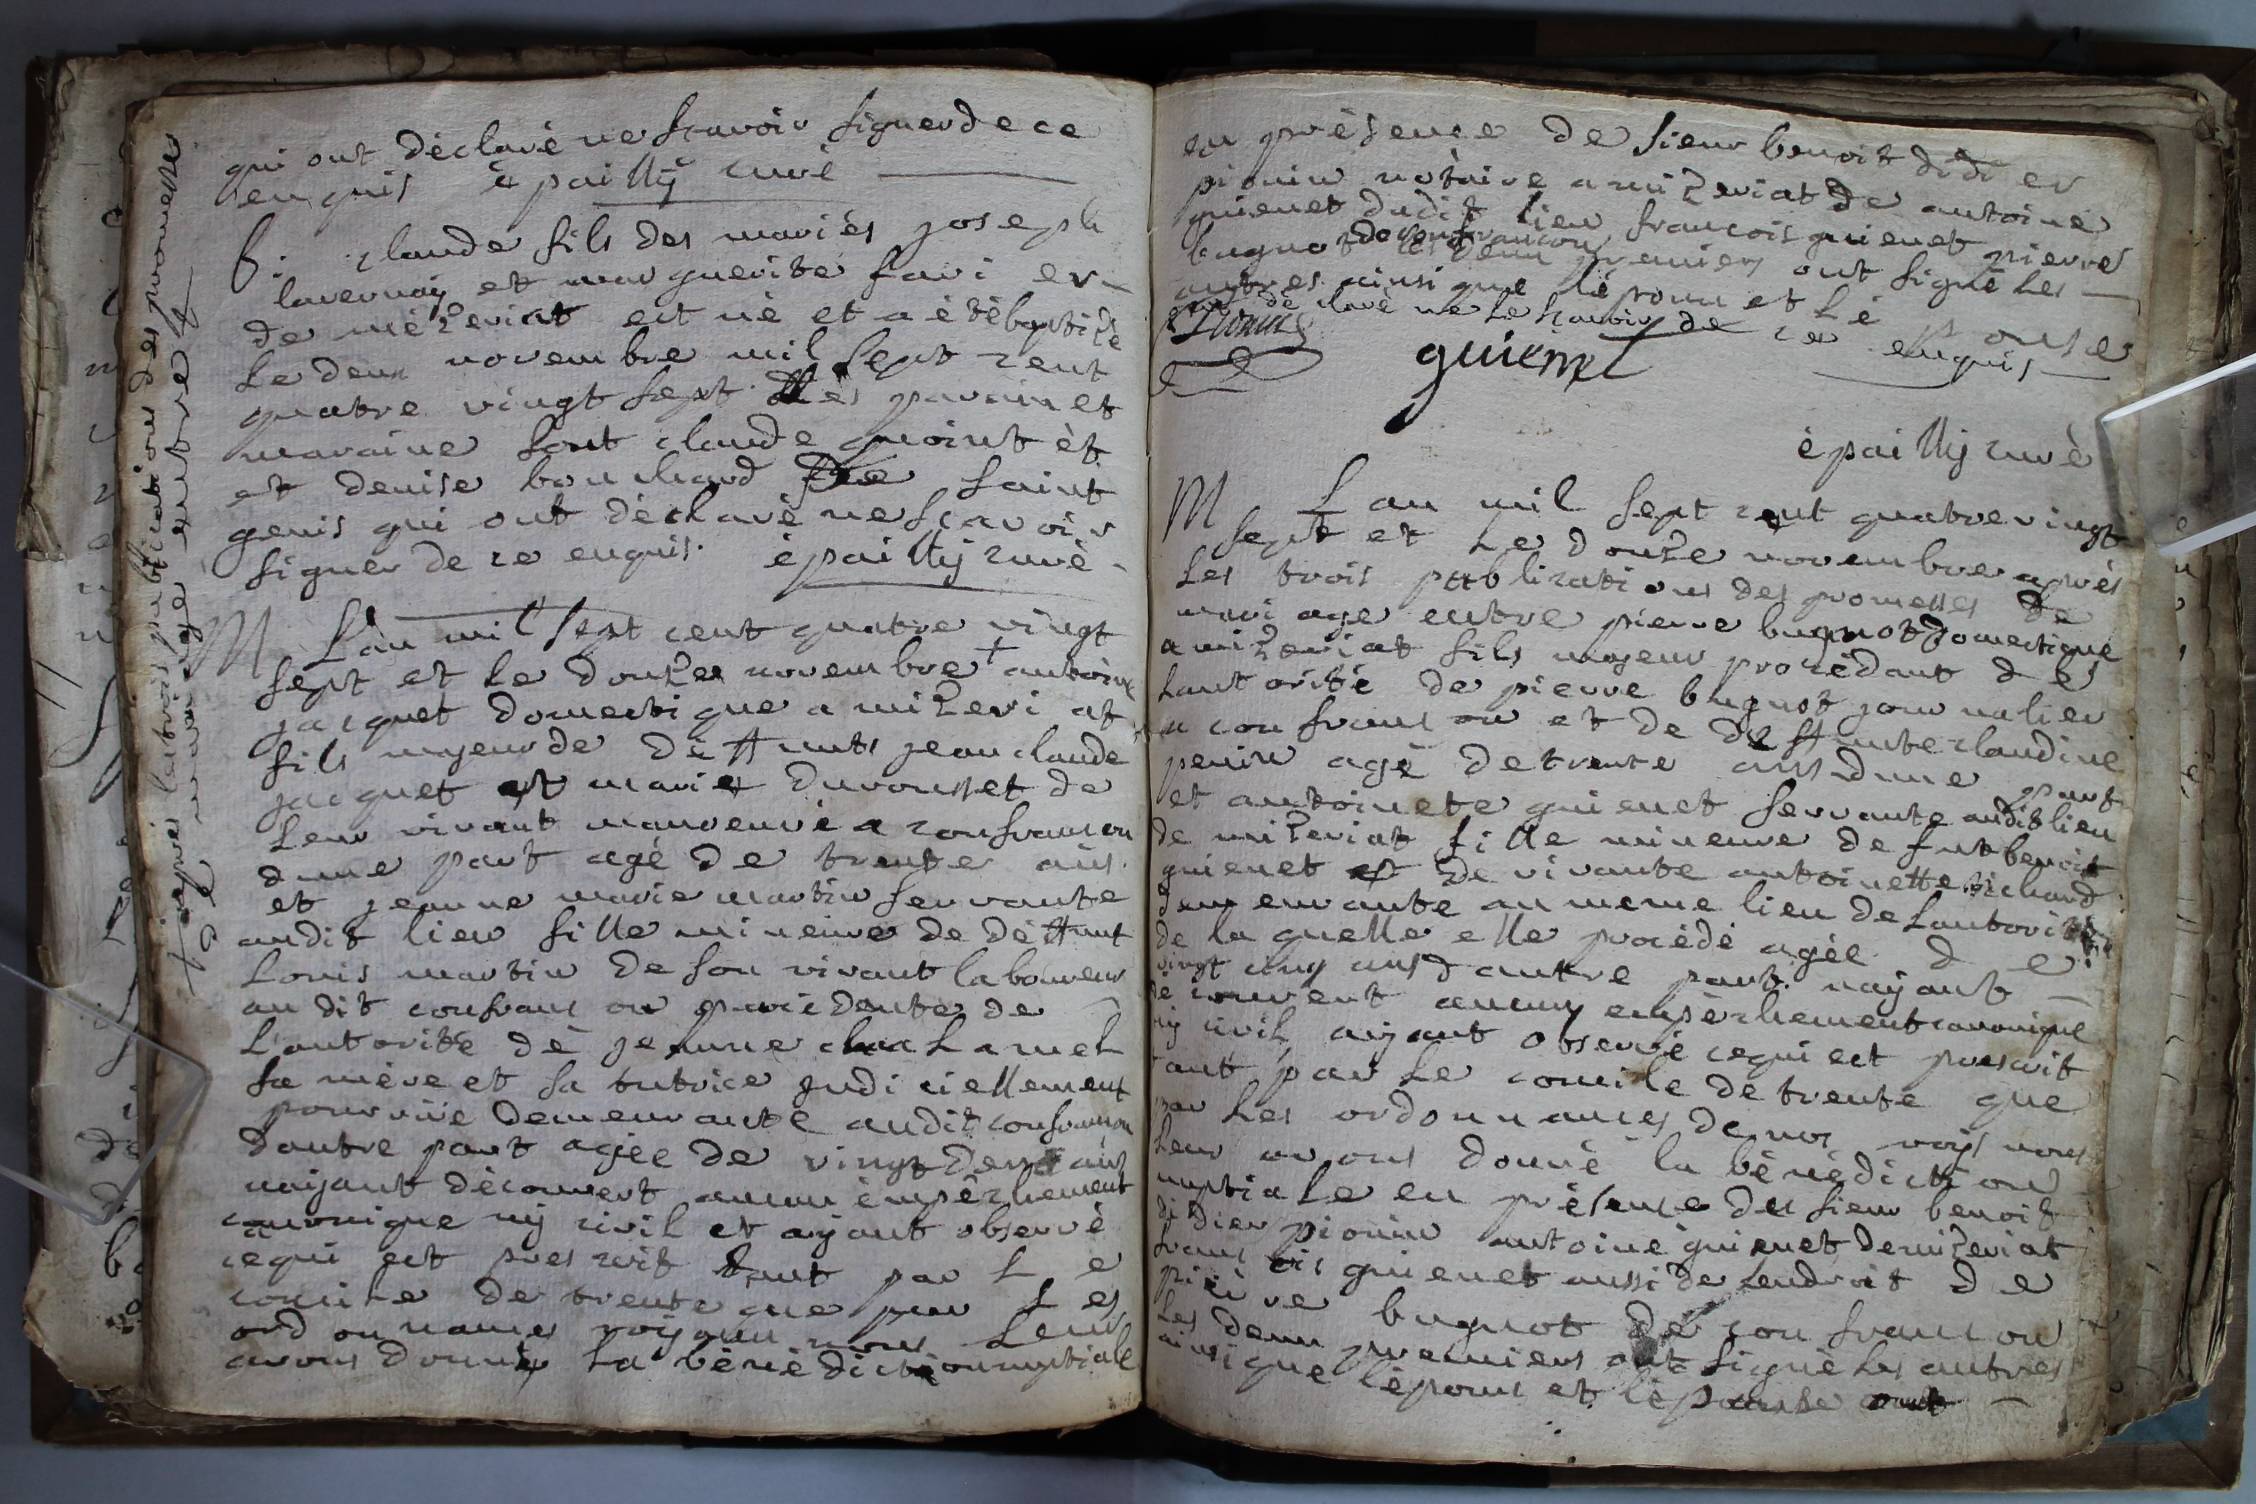 qui ont déclaré ne sçavoir signer de ce
enquis épailly curé
B. claude fils des mariés joseph
lavernay et marguerite favier
de mézeriat est né et a été baptizé
Le deux novembre mil sept cent
quatre vingt sept Les parain et
maraine sont claude
et denise bouchard de saint
genis qui ont déclaré ne sçavoir
signer de ce enquis. épailly curé
M L'an mil sept cent quatre vingt
sept et Le douze novembre + antoine
jacquet domestique a mizeriat
fils majeur de déffunts jean claude
jacquet et marie duvousset de
Leur vivant manoeuvre a confrancon
dune part agé de trente ans.
et jeanne marie martin servante
audit lieu fille mineure de déffunt
Louis martin de son vivant laboureur
au dit confrancon procédante de
L'autorité de jeanne
sa mère et sa tutrice judiciellement
pourvüe demeurante audit confrancon
dautre part agée de vingt deux ans
nayant découvert aucun empêchement
canonique ny civil et ayant observé
cequi est prescrit tant par Le
concile de trente que par Les
ordonnances royaux nous Leur
avons donné La bénédiction nuptiale
+ après les trois publications des promesses
de mariage entre
en présence de sieur benoit didier
pionin notaire a mizeriat de antoine
guienet dudit lieu françois guienet pierre
bugnot de confrancon
les deux premiers ont signé Les
autres ainsi que l'époux et L'épouse
ont déclaré ne Le sçavoir de ce enquis
Pionin
guienet
épailly curé
M L'an mil sept cent quatre vingt
sept et Le douze novembre après
Les trois publications des promesses de
mariage entre pierre bugnot domestique
a mizeriat fils majeur procédant de
Lautorité de pierre bugnot journalier
a confrancon et de déffunte claudine
penin agé de trente ans dune part
et antoinete guienet servante audit lieu
de mizeriat fille mineure de fut benoit
guienet et de vivante antoinette
demeurante au meme lieu de Lautorité
de laquelle elle procédé agée de
vingt cinq ans dautre part. nayant
découvert aucuns empêchement canonique
ny civil ayant observé cequi est prescrit
tant par Le concile de trente que
par Les ordonnances de nos roys nous
Leur avons donné la bénédiction
nuptiale en présence des sieur benoit
didier pionin antoine guienet de mizeriat
francois guienet aussi de Lendroit de
pierre bugnot de confrancon
Les deux premiers ont signé Les autres
ainsique l'époux et l'épouse ont